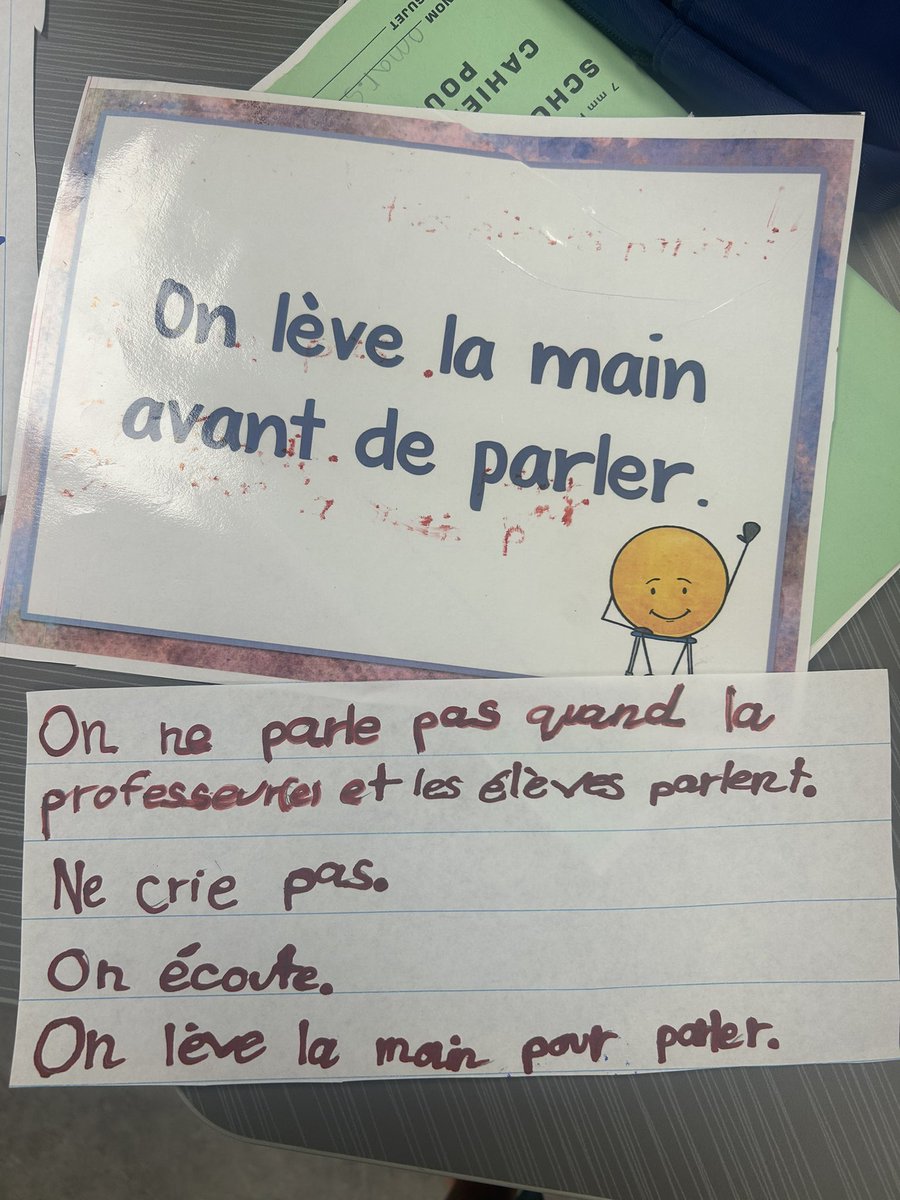 NOM
SUJET
7 mm
SCHO
CAHIE
POU
On lève la main
avant de parler.
On ne parle pas quand la
professeur(e) et les élèves parlent.
Ne crie pas.
On écoute.
On lève la main pour parler.